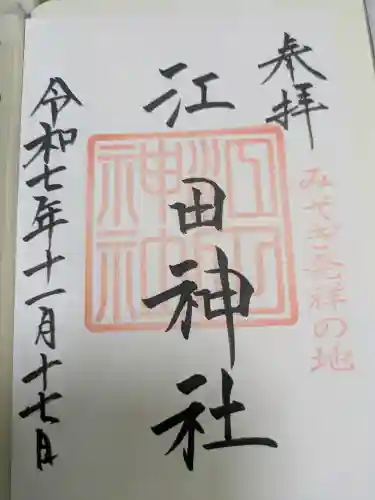 奉拝
みそぎ発祥の地
江田神社
令和七年十一月十七日